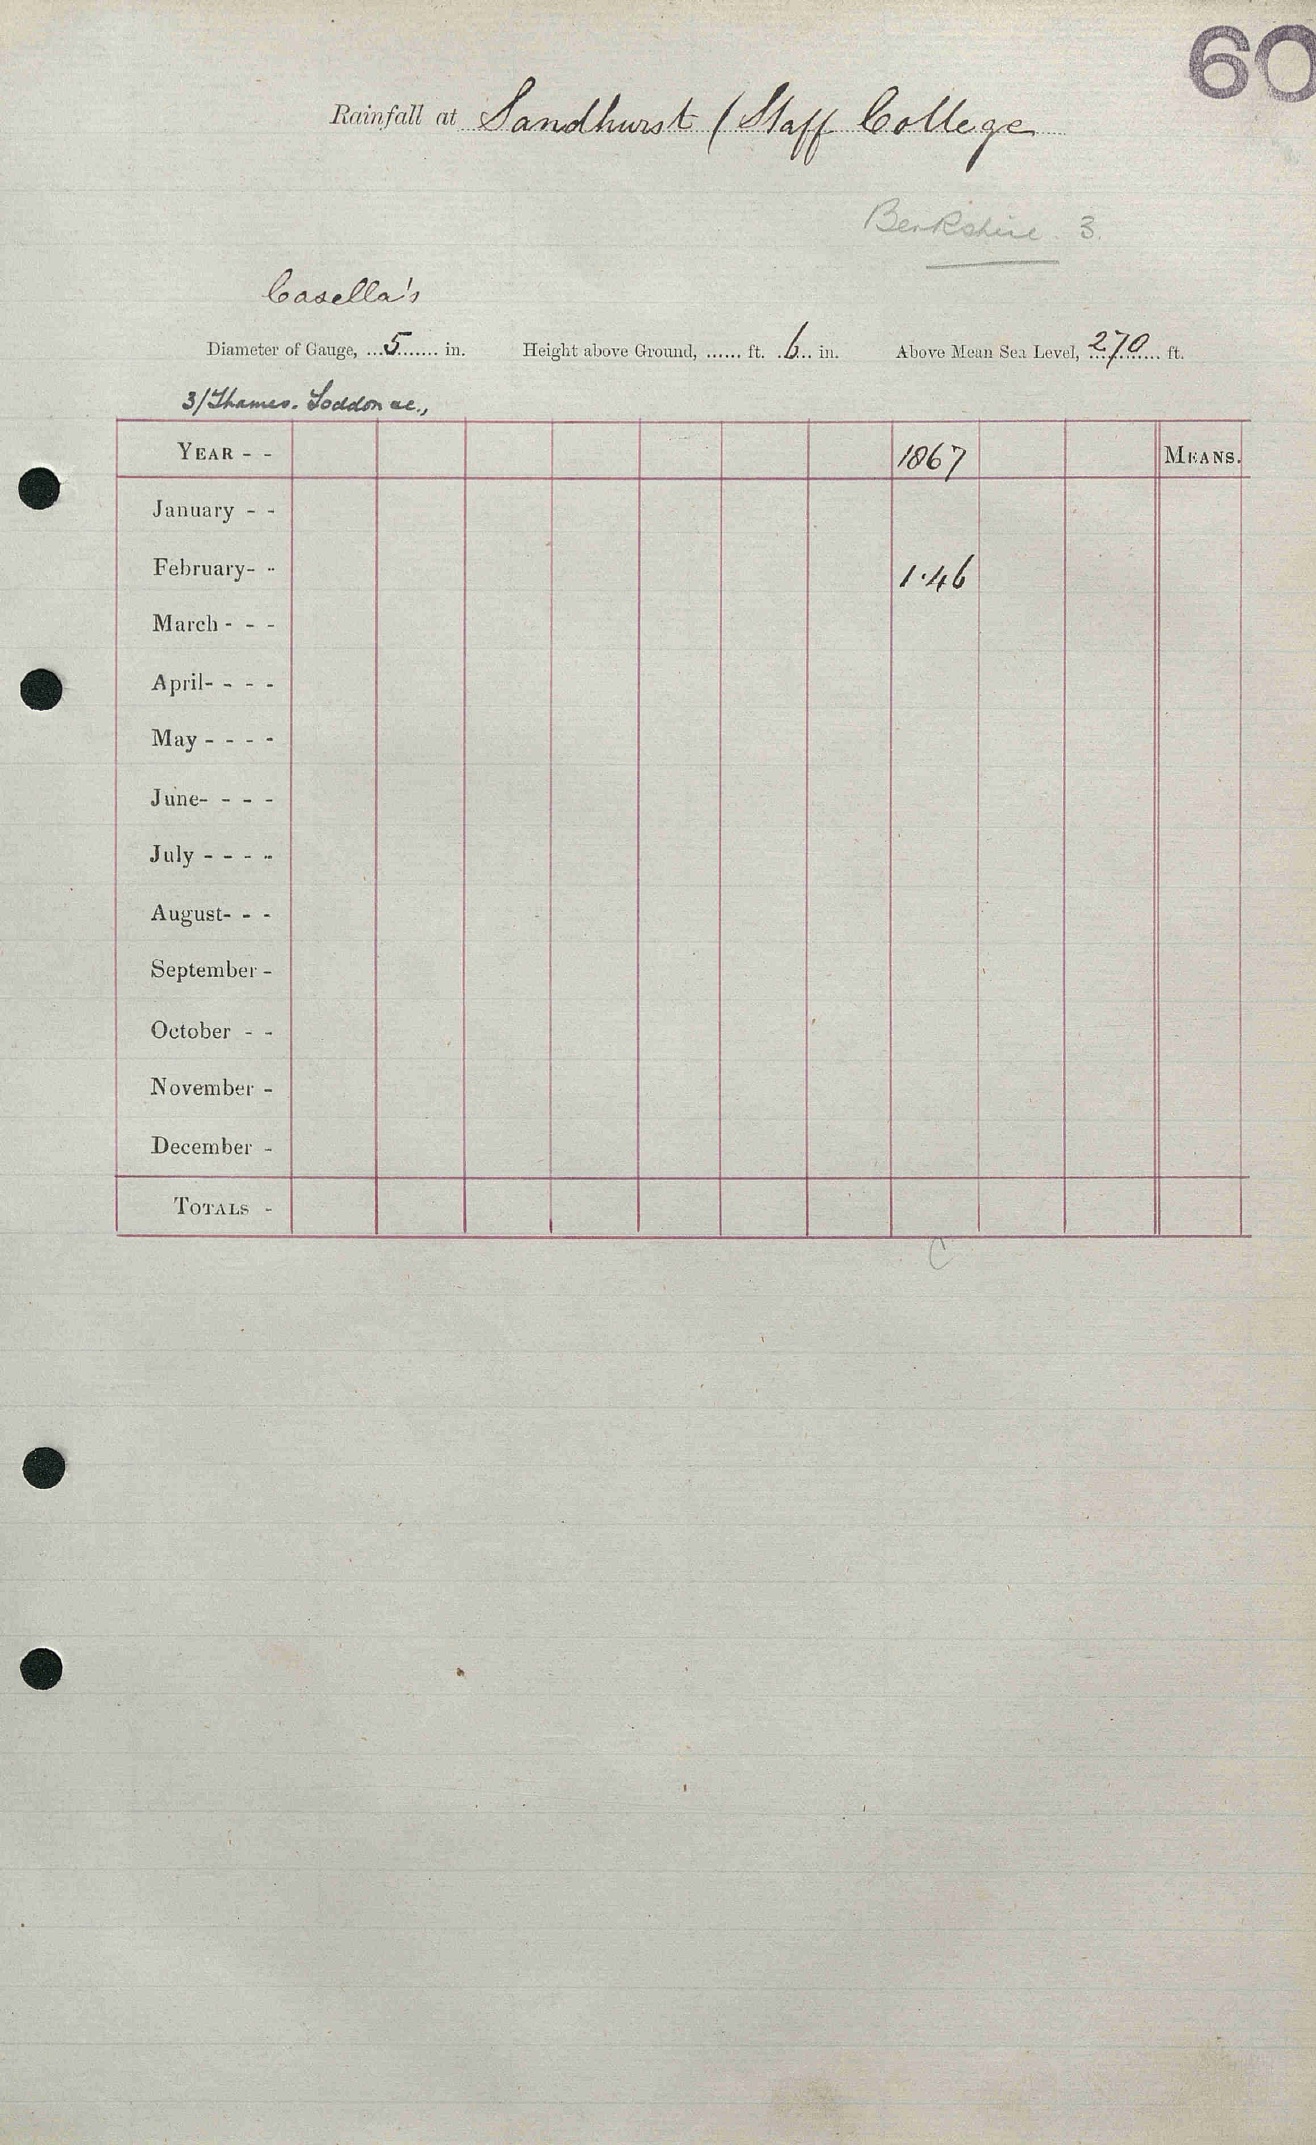 60
Rainfall at Sandhurst (Staff College
Berkshire. 3.
Casella's
Diameter of Gauge, ...5....... in. Height above Ground, ...... ft. .6... in. Above Mean Sea Level, 270 ft.
3/Thames. Loddon &c.,
YEAR - - 1867 MEANS.
January - -
February- - 1.46
March - - -
April- - - -
May - - - -
June- - - -
July - - - -
August- - -
September -
October - -
November -
December -
TOTALS -
C